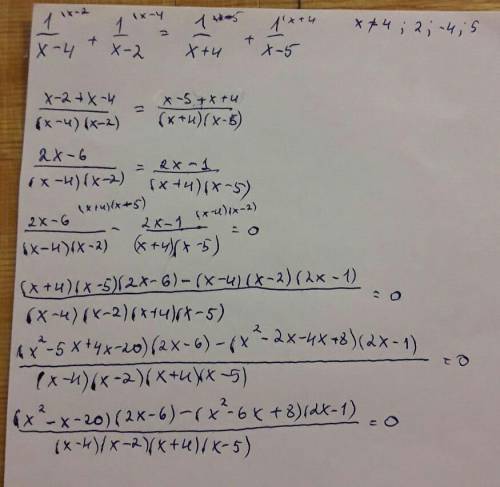 1/(x-4) ^(x-2) + 1/(x-2) ^(x-4) = 1/(x+4) ^(x-5) + 1/(x-5) ^(x+4)   x ≠ 4 ; 2 ; -4 ; 5
(x-2+x-4)/((x-4)(x-2)) = (x-5+x+4)/((x+4)(x-5))
(2x-6)/((x-4)(x-2)) = (2x-1)/((x+4)(x-5))
(2x-6)/((x-4)(x-2)) ^((x+4)(x+5)) - (2x-1)/((x+4)(x-5)) ^((x-4)(x-2)) = 0
((x+4)(x-5)(2x-6)-(x-4)(x-2)(2x-1))/((x-4)(x-2)(x+4)(x-5)) = 0
((x²-5x+4x-20)(2x-6)-(x²-2x-4x+8)(2x-1))/((x-4)(x-2)(x+4)(x-5)) = 0
((x²-x-20)(2x-6)-(x²-6x+8)(2x-1))/((x-4)(x-2)(x+4)(x-5)) = 0